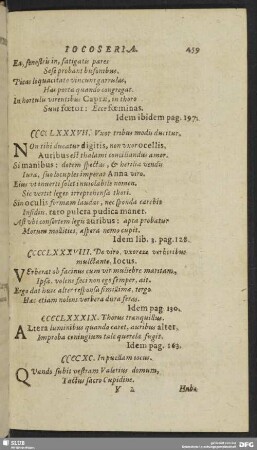 IOCOSERIA. 459
Ex fenestris in, fatigatis pares
Sese probant bufonibus,
Picas loquacitate vincunt garrulas,
Hac porta quando congregat.
In hortulis virentibus Cuprae, in thoro
Sunt foetor: Ecce foeminas.
Idem ibidem pag. 197.
CCCCLXXXVII. Vxor tribus modis ducitur.
NOn tibi ducatur digitis, non uxor ocellis,
Auribus est thalami conciliandus amor.
Si manibus: dotem spectas, & turpia vendis
Iura, sub locuples imperat Anna viro.
Eius ut invertè solet inviolabile nomen,
Sic vertit leges irreprehensa thori.
Sin oculis formam laudas, nec sponda caribis
Insidiis. raro pulcra pudica manet.
Ast ubi consortem legis auribus: apta probatur
Morum mollities, aspera nemo cupit.
Idem lib. 3. pag. 128.
CCCCLXXXVIII. De viro, uxorem verberibus
mulctante, Iocus.
VErberat ob facinus cum vir muliebre maritam,
Ipsa, volens feci non ego semper, ait.
Ergo dat huic alter responsa simillima, tergo
Has etiam nolens verbera dura feras.
Idem pag 130.
CCCCLXXXIX. Thorus tranquillus.
ALtera luminibus quando caret, auribus alter,
Improba coniugium tale querela fugit.
Idem pag. 163.
CCCCXC. In puellam iocus.
QVando subit vestram Valerius domum,
Tactus sacro Cupidine,
V 2 Hubæ
SLUB
DFG